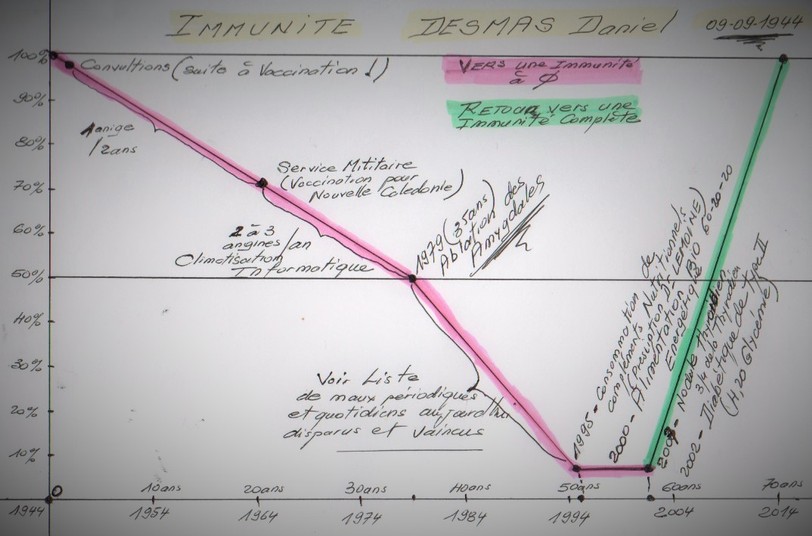 IMMUNITE DESMAS Daniel 09-09-1944
VERS une Immunité
à Ø
RETOUR vers une
Immunité Complète
100%
90%
80%
70%
60%
50%
40%
30%
20%
10%
Convultions (suite à Vaccination !)
1 anige
/2ans
Service Militaire
(Vaccination pour
Nouvelle Caledonie)
2 à 3
angines/an
Climatisation
Informatique
1979 (35ans)
Ablation des
Amygdales
Voir Liste
de maux périodiques
et quotidiens aujourd'hui
disparus et Vaincus
1995 - Consommation de
compléments Nutritionnels
(Prescription Dr LEMOINE)
2000 - Alimentation BIO 60-20-20
Energétique
Nodule thyroïdien
3/4 de la thyroïde
2002 - Diabétique de type II
(H,20 Glycémie)
0 10ans 20ans 30ans 40ans 50ans 60ans 70ans
1944 1954 1964 1974 1984 1994 2004 2014